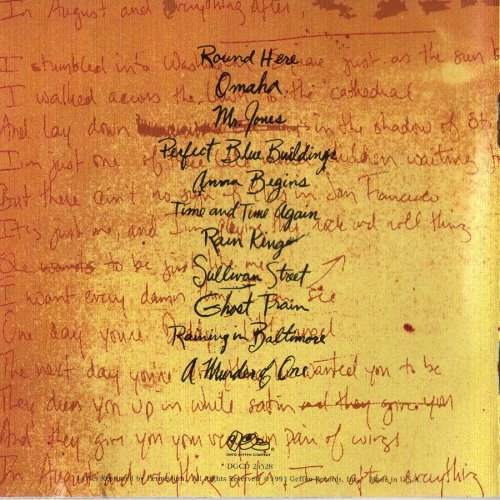 In August and everything after,
Round Here
I stumbled into just as the sun
Omaha
I walked across the to the cathedral
Mr. Jones
And lay down in the shadow of St.
Perfect Blue Buildings
I'm just one of waiting
Anna Begins
But there ain't no in San Francisco
Time and Time Again
It's just me, and I'm playing this rock and roll thing
Rain King
She wants to be just like me
Sullivan Street
I want every damn
Ghost Train
One day you're
Raining in Baltimore
The next day you're wanted you to be
A Murder of One
They dress you up in white satin and they give you
And they give you your very own pair of wings
DAVID GEFFEN COMPANY
* DGCD 24528
Lyrics Reprinted by Permission. All Rights Reserved. ℗ 1993 Geffen Records, Inc. Made in U.S.A.
In August and everything after I'm after everything